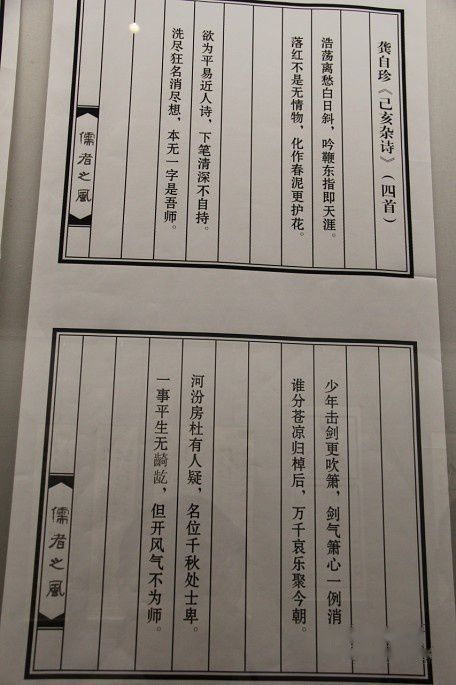 龚自珍《己亥杂诗》（四首）
浩荡离愁白日斜，吟鞭东指即天涯。
落红不是无情物，化作春泥更护花。
欲为平易近人诗，下笔清深不自持。
洗尽狂名消尽想，本无一字是吾师。
儒者之风
少年击剑更吹箫，剑气箫心一例消
谁分苍凉归棹后，万千哀乐聚今朝。
河汾房杜有人疑，名位千秋处士卑。
一事平生无齮龁，但开风气不为师。
儒者之风